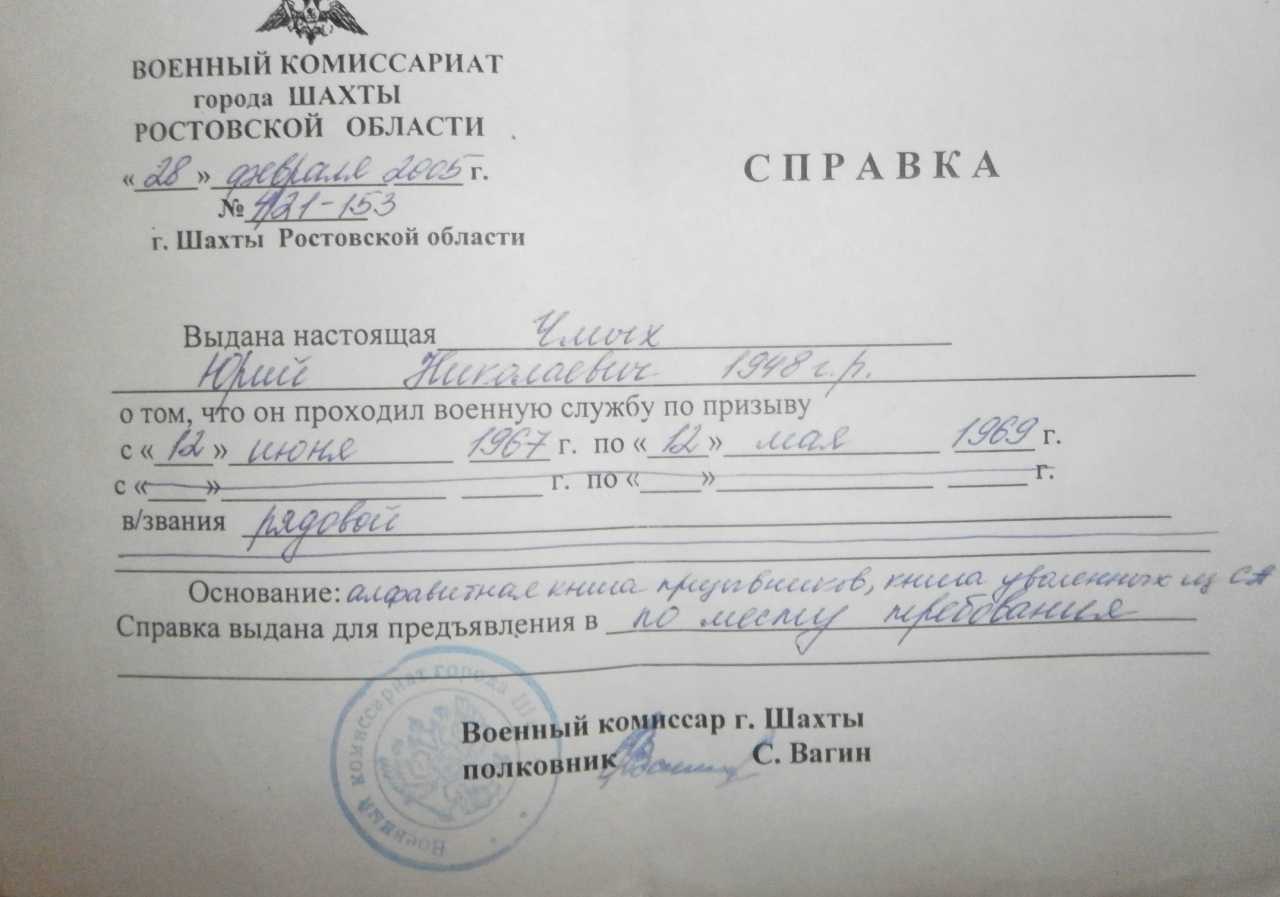 ВОЕННЫЙ КОМИССАРИАТ
города ШАХТЫ
РОСТОВСКОЙ ОБЛАСТИ
«28» февраля 2005 г.
№ 421-153
г. Шахты Ростовской области
СПРАВКА
Выдана настоящая Чмых
Юрий Николаевич 1948 г.р.
о том, что он проходил военную службу по призыву
с «12» июня 1967 г. по «12» мая 1969 г.
с «____»____ ____ г. по «____»____ ____ г.
в/звания рядовой
Основание: алфавитная книга призывников, книга уволенных из СА
Справка выдана для предъявления в по месту требования
Военный комиссар г. Шахты
полковник С. Вагин
Военный комиссариат города